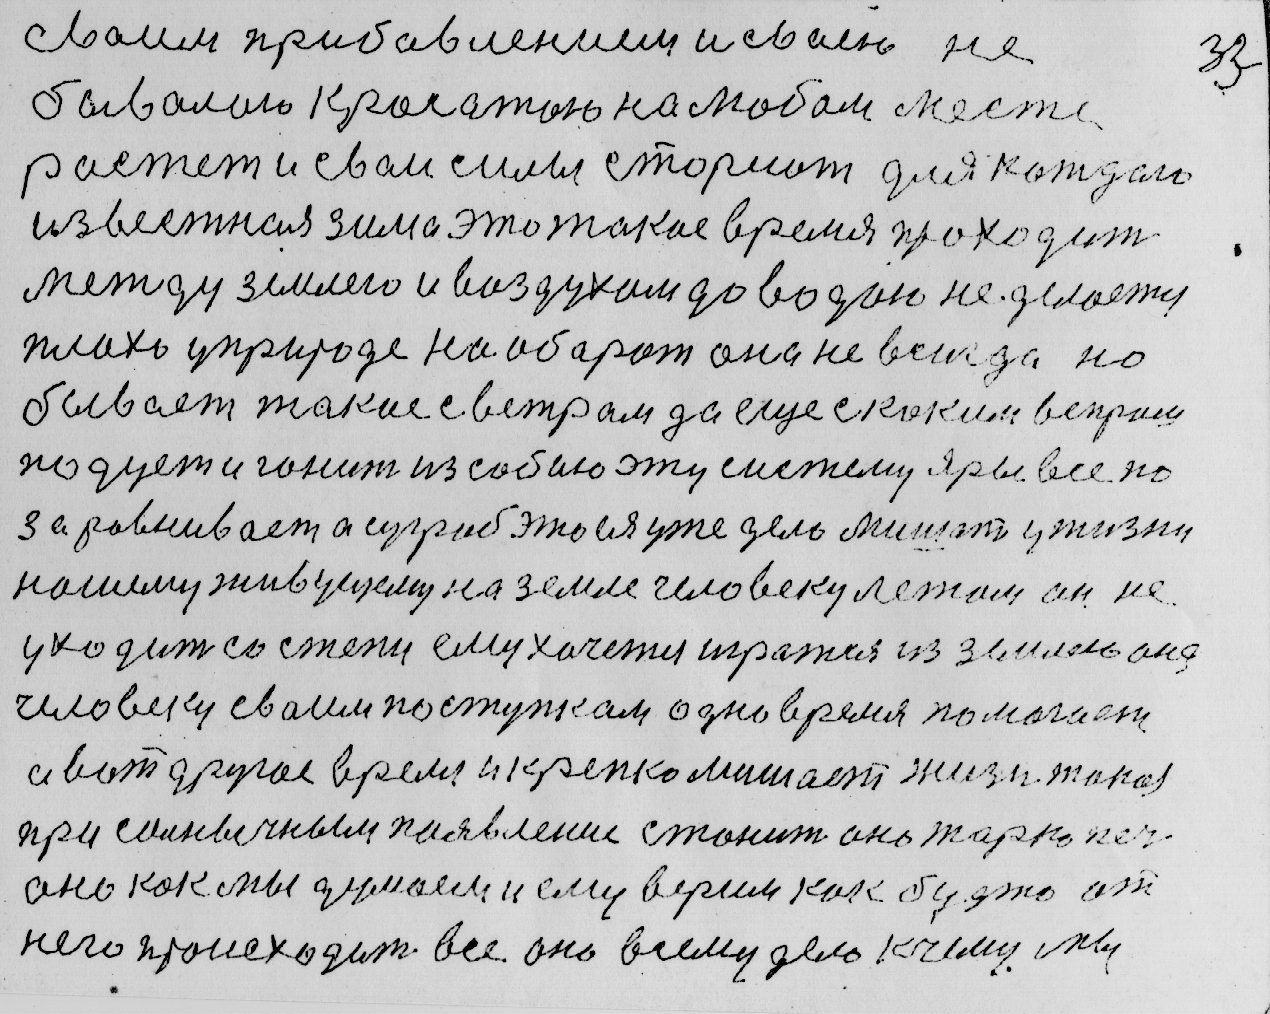 сваим прибавлением и сваею не 33
бывалою красатою на любом месте
растет и сваи силы сториют для каждаго
известная зима это такое время проходит
между землею и воздухам до водою не делоетця
плохо у природе на обарот она не всигда но
бывает такое с ветрам да еще с каким ветрам
подует и гонит из собою эту систему яры все по
заровнивает а сугроб этося уже дело мишать у жизни
нашему живущему на земле человеку летом он не
уходит со степи ему хочетця игратся из землею она
человеку сваим поступкам одно время помогает
а вот другое время и крепко мишает жизн такая
при солнычным паявление станит оно жарко печ
оно как мы думаем и ему верим как будто от
него происходит все оно всему дело к чему мы